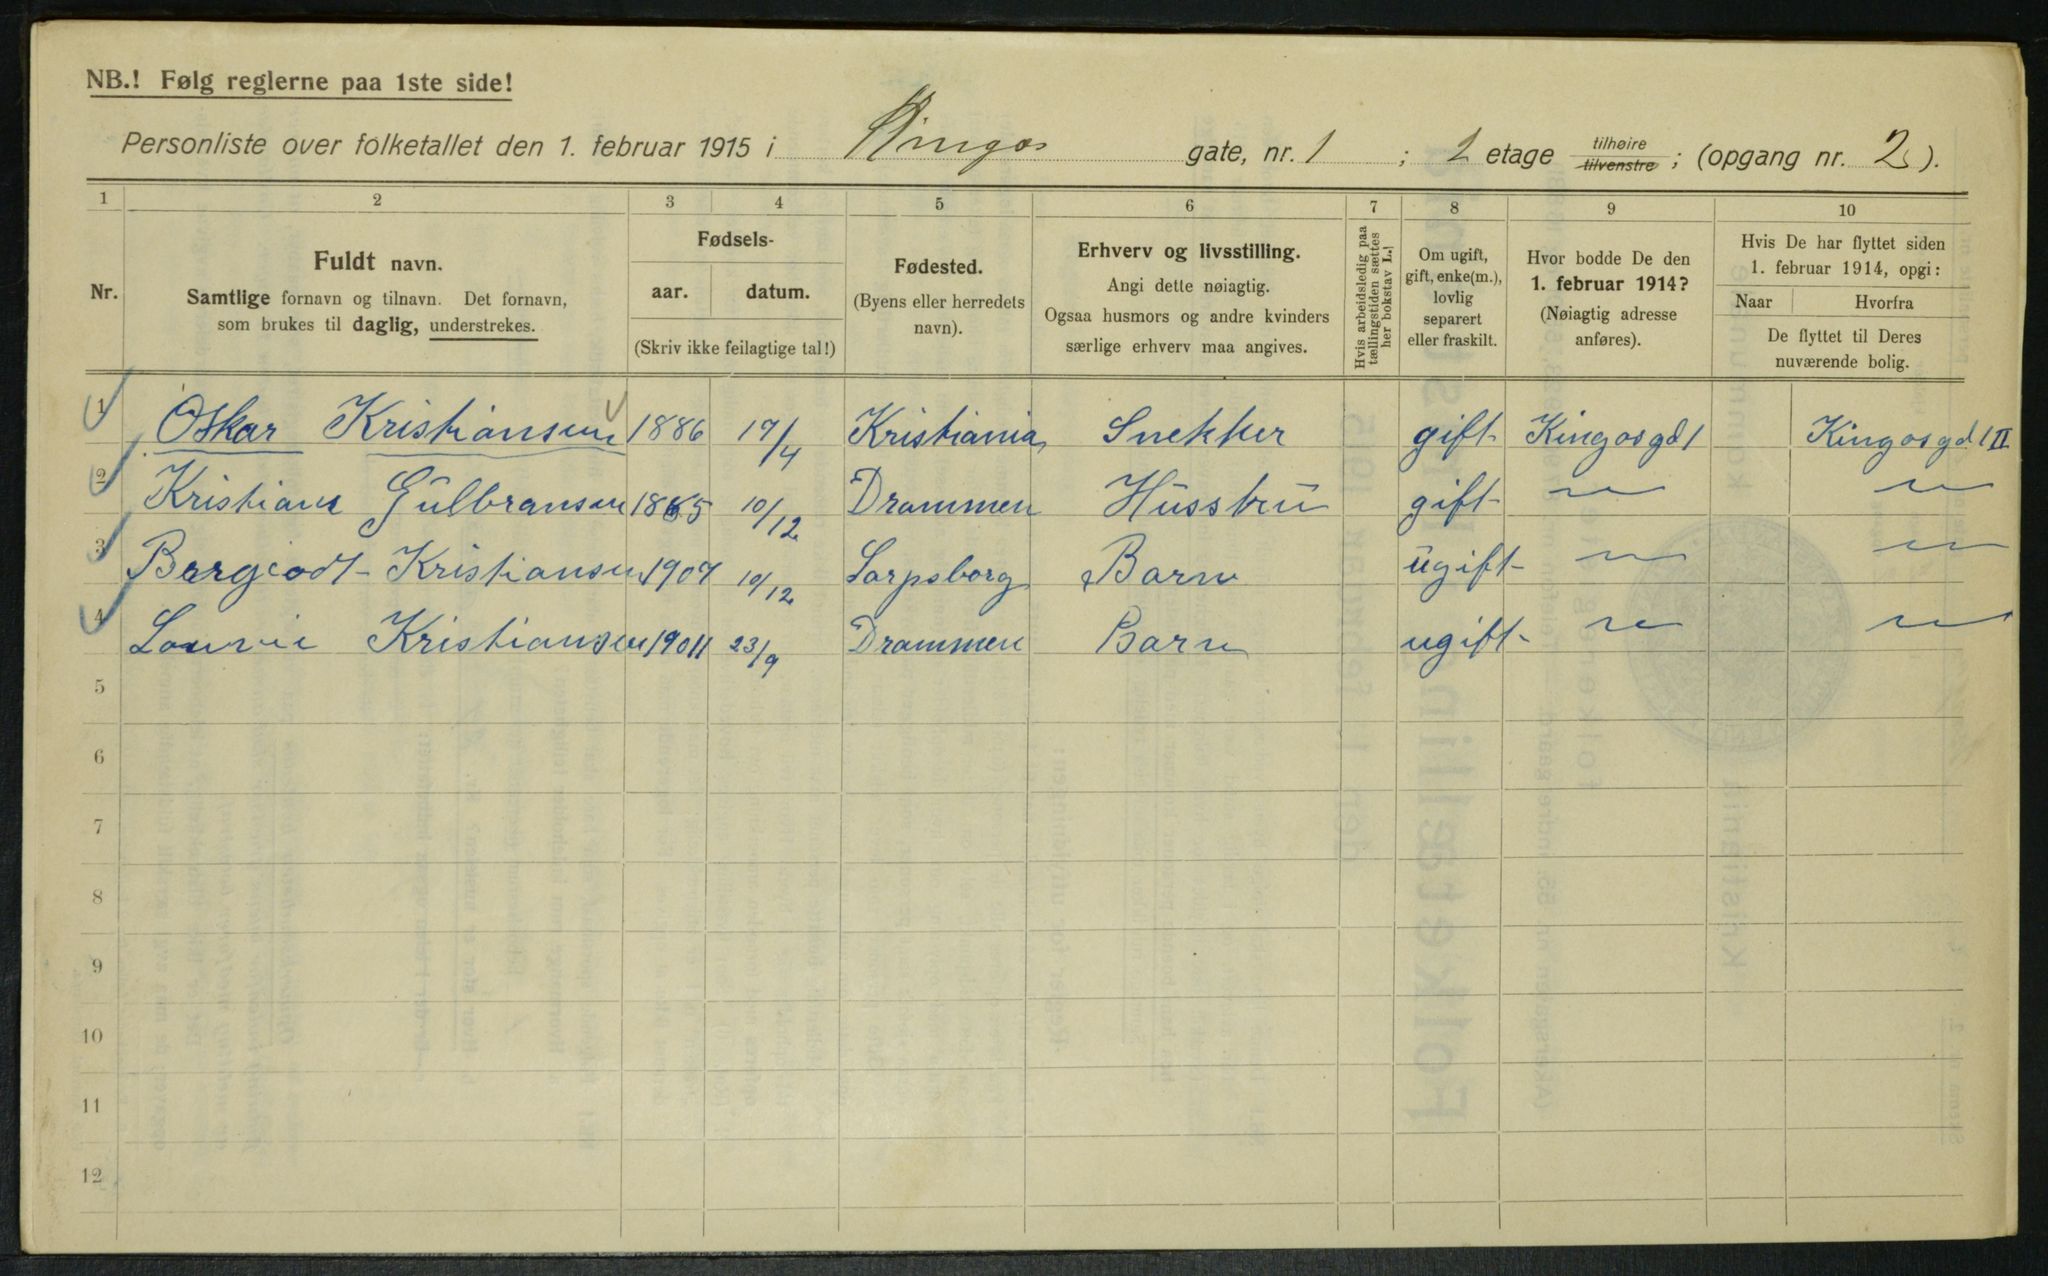 NB.! Følg reglerne paa 1ste side!
Personliste over folketallet den 1. februar 1915 i Kingos gate, nr. 1 ; 2 etage tilhøire tilvenstre ; (opgang nr. 2 ).
1 2 3 4 5 6 7 8 9 10
Nr.
Fuldt navn.
Samtlige fornavn og tilnavn. Det fornavn,
som brukes til daglig, understrekes.
Fødsels-
aar. datum.
(Skriv ikke feilagtige tal!)
Fødested.
(Byens eller herredets
navn).
Erhverv og livsstilling.
Angi dette nøiagtig.
Ogsaa husmors og andre kvinders
særlige erhverv maa angives.
Hvis arbeidsledig paa
tællingstiden sættes
her bokstav L.!
Om ugift,
gift, enke(m.),
lovlig
separert
eller fraskilt.
Hvor bodde De den
1. februar 1914?
(Nøiagtig adresse
anføres).
Hvis De har flyttet siden
1. februar 1914, opgi:
Naar Hvorfra
De flyttet til Deres
nuværende bolig.
1 Oskar Kristiansen 1886 17/4 Kristiania Snekker gift Kingosgd 1 Kingosgd 1 II
2 Kristiane Gulbransen 1885 10/12 Drammen Hustru gift " "
3 Kristiansen 1907 10/12 Sarpsborg Barn ugift " "
4 Kristiansen 1911 23/9 Drammen Barn ugift " "
5
6
7
8
9
10
11
12